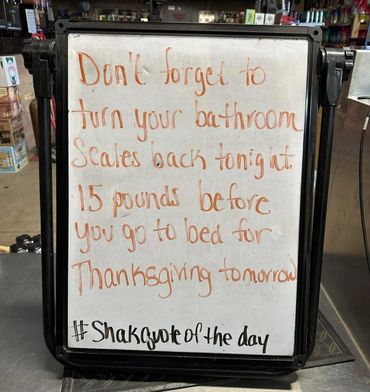 Don't forget to
turn your bathroom
Scales back tonight
15 pounds before
you go to bed for
Thanksgiving tomorrow
#Shakquote of the day